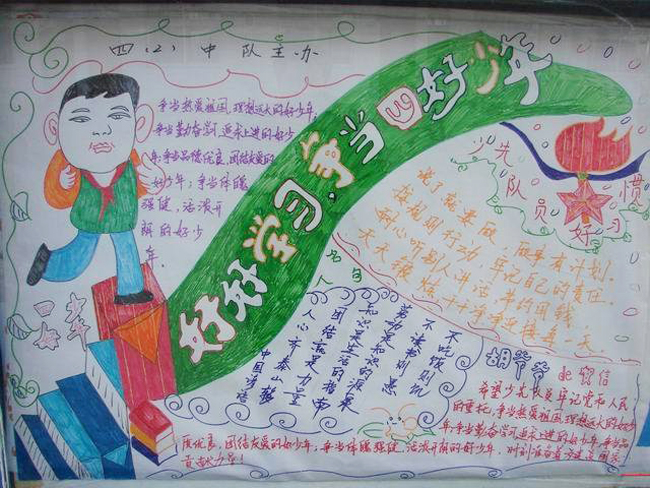 四(2)中队主办
争当热爱祖国,理想远大的好少年,
争当勤奋学习,追求上进的好少
年,争当品德优良,团结友爱的
好少年;争当体魄
强健,活泼开
朗的好少
年.
好好学习,争当四好少年
少先
队员
好习
惯
做事有计划.
按规则行动,牢记自己的责任.
耐心听别人讲话,
天天锻炼,
名人
名句
不吃饭则饥
不读书则愚
劳动是知识的源泉
知识是生活的指南
团结就是力量
人心齐泰山移
中国名谚语
贺信
希望少先队员牢记党和人民
的重托,争当热爱祖国,理想远大的好少
年;争当勤奋学习,追求上进的好少年,争当品
德优良,团结友爱的好少年;争当体魄强健,活泼开朗的好少年,时刻准备着
贡献力量!